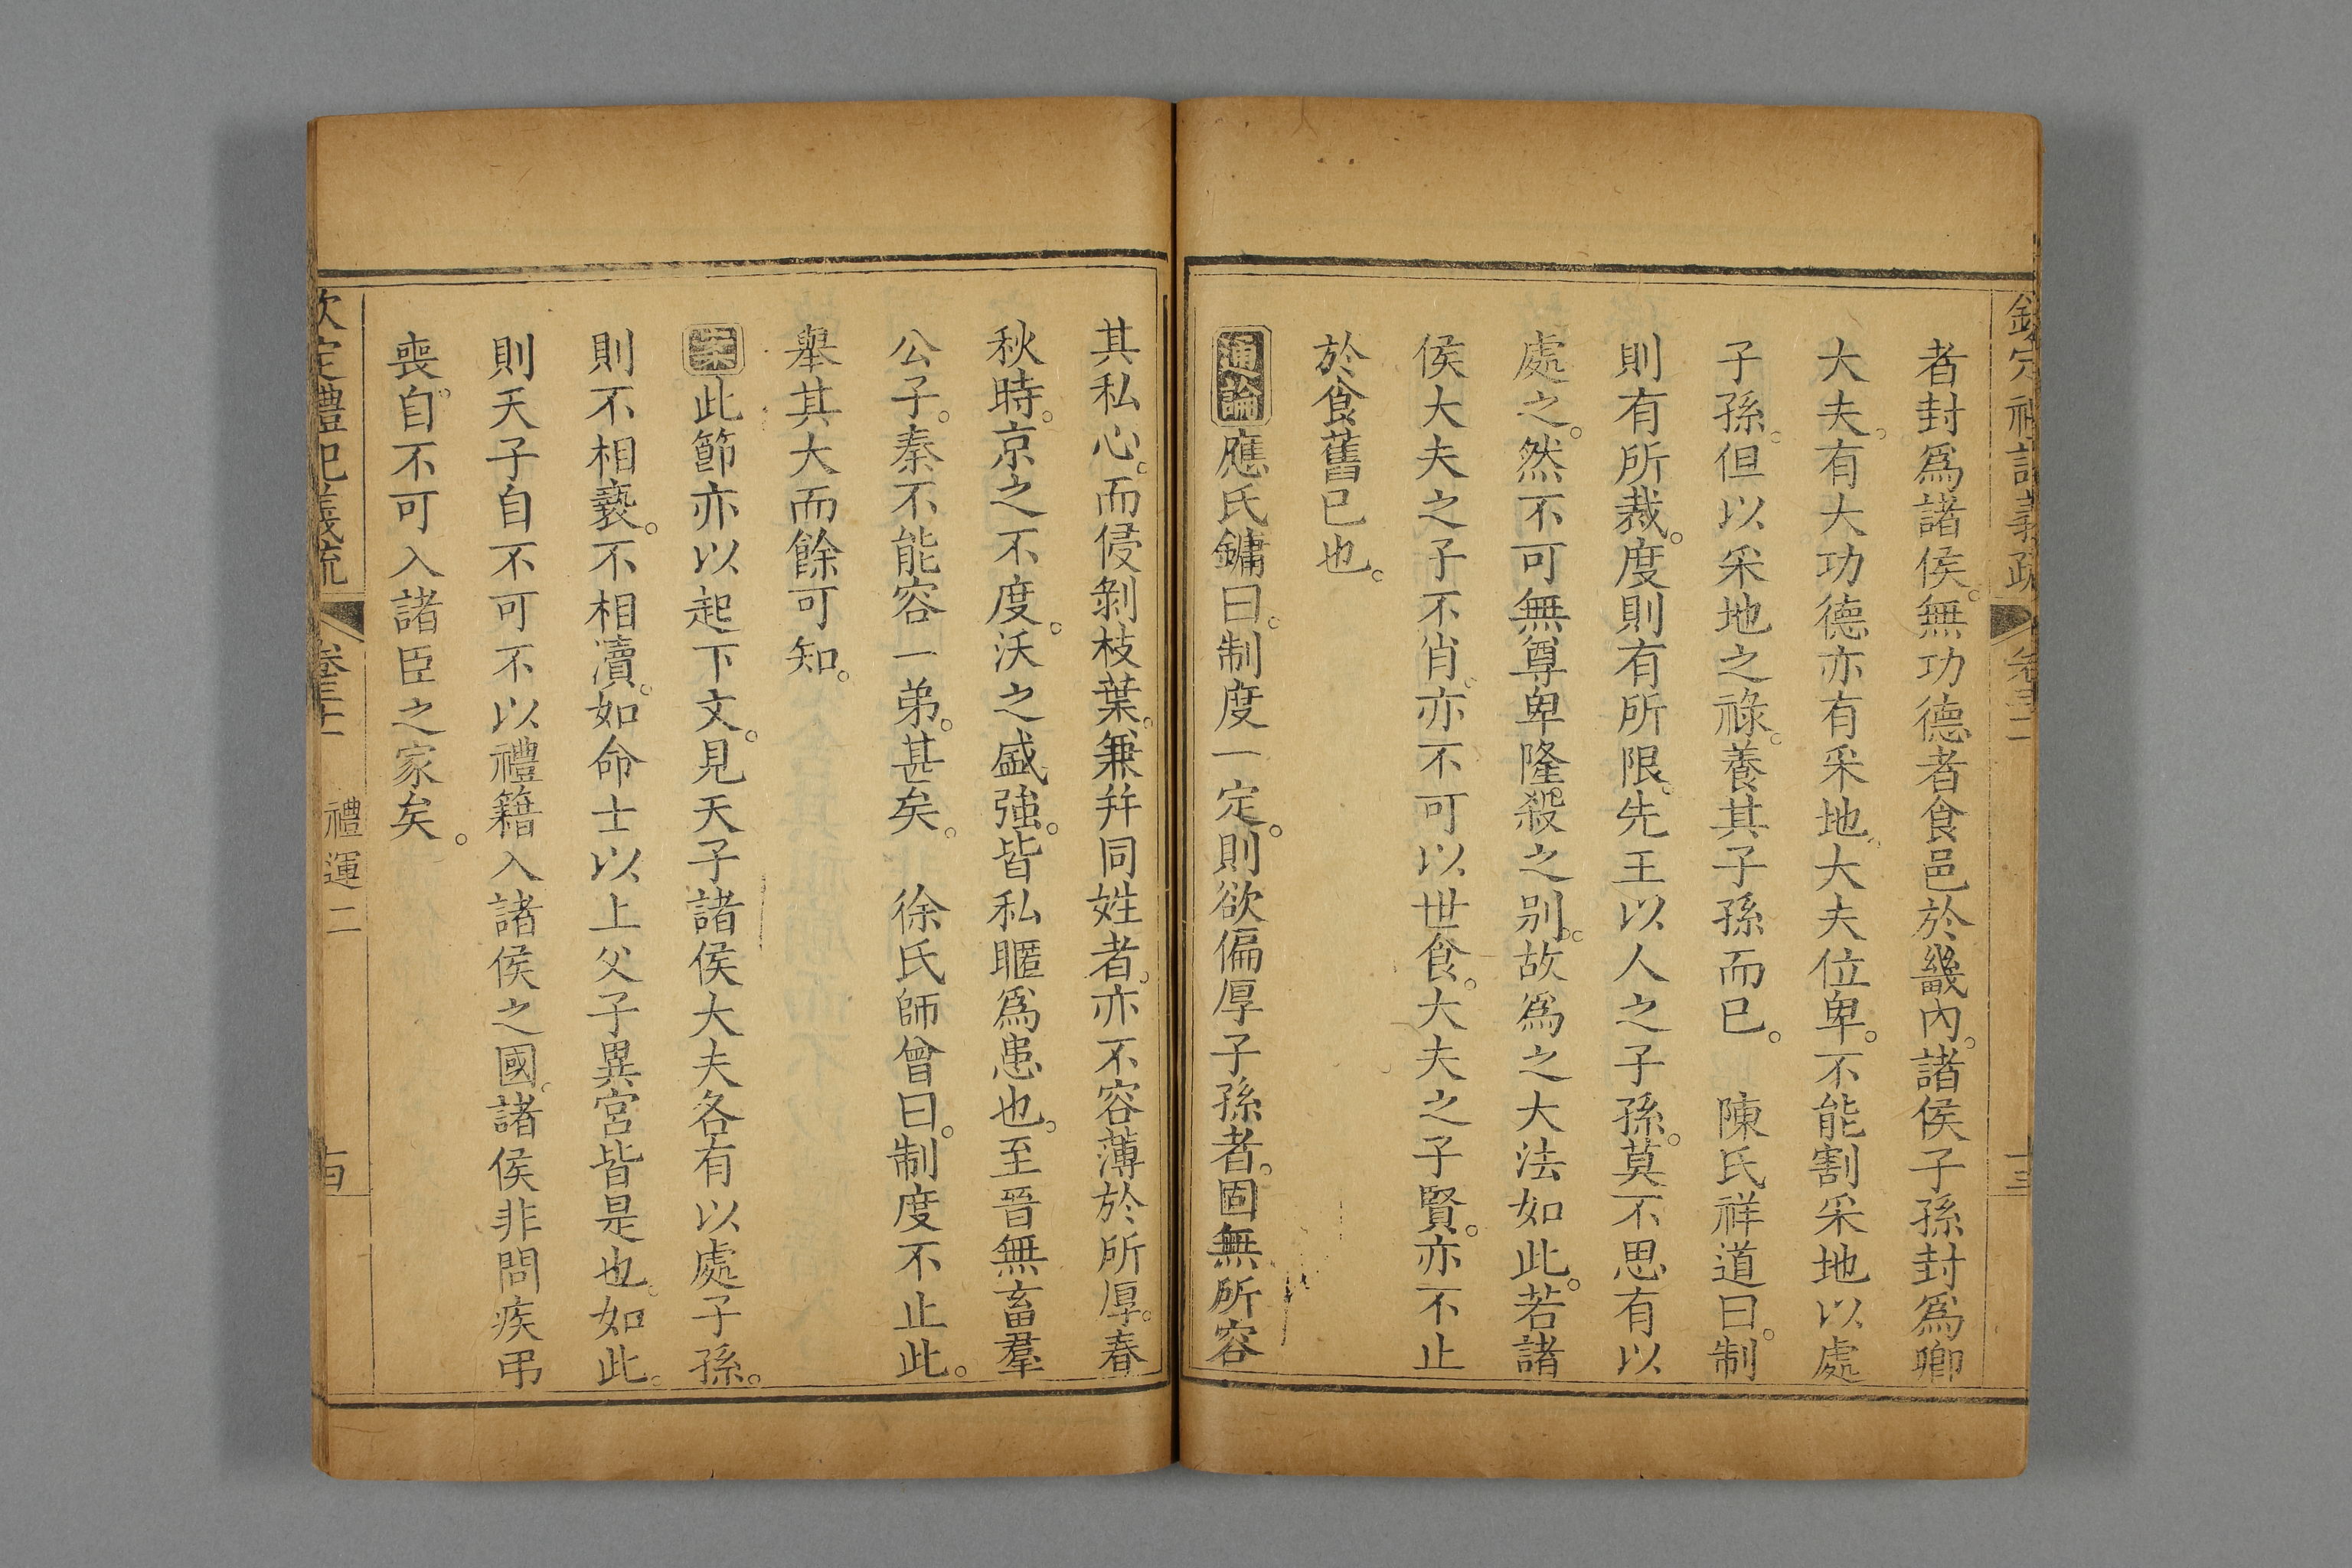 欽定禮記義疏 卷三十一 十三
者封爲諸侯。無功德者食邑於畿內。諸侯子孫封爲卿
大夫。有大功德亦有采地。大夫位卑。不能割采地以處
子孫。但以采地之祿。養其子孫而已。 陳氏祥道曰。制
則有所裁。度則有所限。先王以人之子孫。莫不思有以
處之。然不可無尊卑隆殺之別。故爲之大法如此。若諸
侯大夫之子不肖。亦不可以世食。大夫之子賢。亦不止
於食舊已也。
通論應氏鏞曰。制度一定。則欲偏厚子孫者。固無所容
其私心。而侵剝枝葉。兼并同姓者。亦不容薄於所厚。春
秋時。京之不度。沃之盛強。皆私暱爲患也。至晉無畜羣
公子。秦不能容一弟。甚矣。 徐氏師曾曰。制度不止此。
舉其大而餘可知。
案此節亦以起下文。見天子諸侯大夫各有以處子孫。
則不相褻。不相瀆。如命士以上父子異宮皆是也。如此。
則天子自不可不以禮籍入諸侯之國。諸侯非問疾弔
喪。自不可入諸臣之家矣。
欽定禮記義疏 卷三十一 禮運二